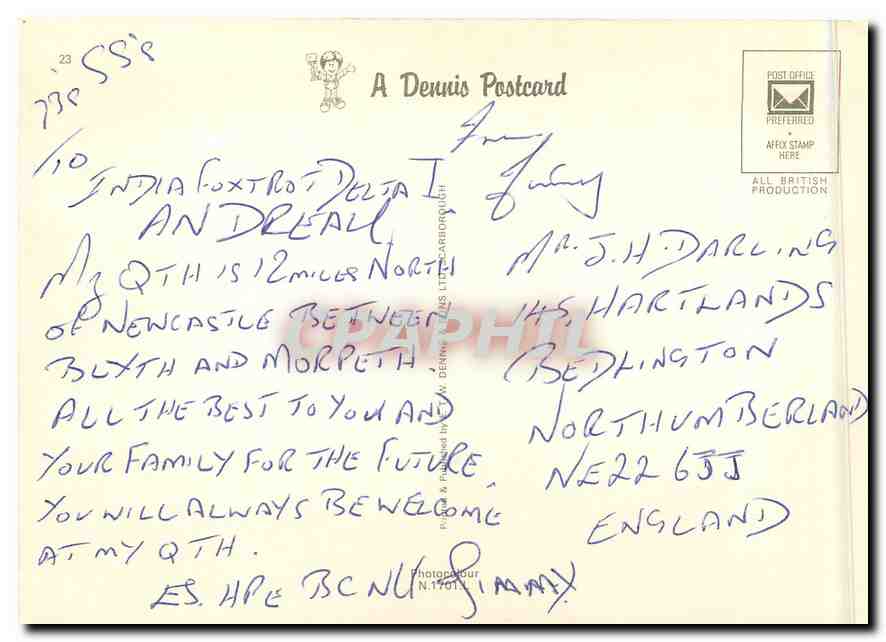 23
73s SS's
A Dennis Postcard
POST OFFICE
PREFERRED
AFFIX STAMP
HERE
ALL BRITISH
PRODUCTION
/10
INDIA FOXTROT DELTA I
ANDREAU
MY QTH IS 12 MILES NORTH
OF NEWCASTLE BETWEEN
BLYTH AND MORPETH.
ALL THE BEST TO YOU AND
YOUR FAMILY FOR THE FUTURE.
YOU WILL ALWAYS BE WELCOME
AT MY QTH.
ES. HPE BCNU JIMMY.
From
Jimmy
MR. J. H. DARLING
145, HARTLANDS
BEDLINGTON
NORTHUMBERLAND
NE22 6JJ
ENGLAND
Printed & Published by E.T.W. DENNIS & SONS LTD., SCARBOROUGH
Photocolour
N.1701.L
CPAPHIL